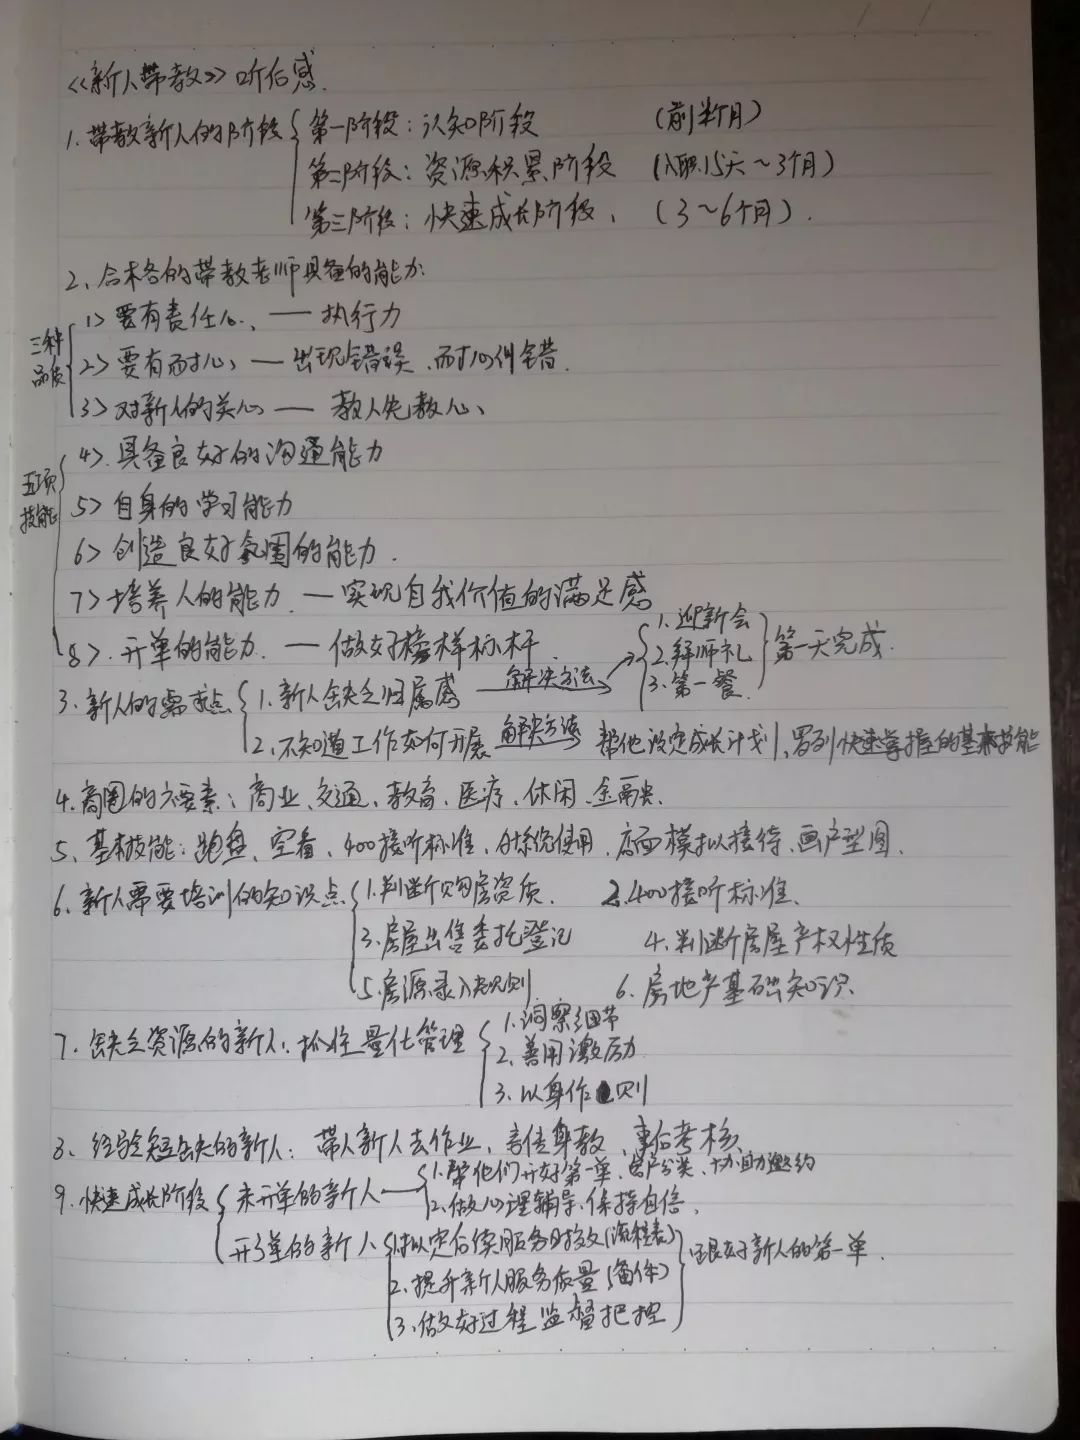 《新人带教》听后感.
1.带教新人的阶段 第一阶段：认知阶段 (前半月)
第二阶段：资源积累阶段 (入职15天～3个月)
第三阶段：快速成长阶段、(3～6个月).
2、合格的带教老师具备的能力:
三种品质
1> 要有责任心、— 执行力
2> 要有耐心、— 出现错误、耐心纠错.
3> 对新人的关心 — 教人先教心、
五项技能
4>.具备良好的沟通能力
5> 自身的学习能力
6> 创造良好氛围的能力.
7> 培养人的能力 — 实现自我价值的满足感
8>.开单的能力. — 做好榜样标杆.
3.新人的需求点 1.新人缺乏归属感 解决方法→ 1.迎新会 2.拜师礼 3.第一餐. 第一天完成.
2.不知道工作如何开展 解决方法 帮他设定成长计划、罗列快速掌握的基本技能
4.商圈的六要素：商业、交通、教育、医疗、休闲、金融.
5、基本技能：跑盘、空看、400接听标准、A+系统使用、店面模拟接待、画户型图.
6.新人需要培训的知识点 1.判断购房资质. 2.400接听标准.
3.房屋出售委托登记 4.判断房屋产权性质
5.房源录入规则 6.房地产基础知识.
7.缺乏资源的新人：抓住量化管理 1.洞察细节
2.善用激励
3.以身作则
8、经验短缺的新人：带人新人去作业、言传身教、事后考核、
9.快速成长阶段 未开单的新人 1.帮他们开好第一单、客户分类、协助邀约
2.做心理辅导、保持自信.
开了单的新人 1.拟定后续服务时效(流程表)
2.提升新人服务质量(备件)
3.做好过程监督把控
跟好新人的第一单.